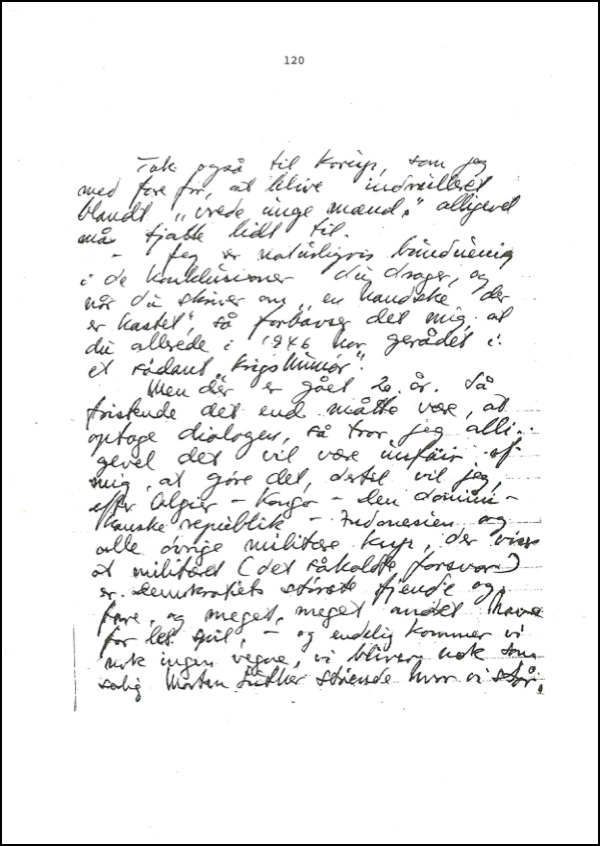 120
Tak også til som jeg
med fare for, at blive indrulleret
blandt "vrede unge mænd", alligevel
må tjatte lidt til.
- Jeg er naturligvis bunduenig
i de konklusioner du drager, og
når du skriver om "en handske der
er kastet", så forbavser det mig, at
du allerede i 1946 har gerådet i
et sådant "krigshumør".
Men dér er gået 20 år. Så
fristende det end måtte være, at
optage dialogen, så tror jeg alli-
gevel det vil være unfair af
mig, at gøre det, dertil vil jeg,
efter Algier - Kongo - Den domini-
kanske republik - Indonesien og
alle øvrige militære kup, der viser
at militæret (det såkaldte forsvar)
er Demokratiets største fjende og
fare, og meget, meget andet have
for let spil, - og endelig kommer vi
nok ingen vegne, vi bliver nok som
salig Morten Luther stående hvor vi står.